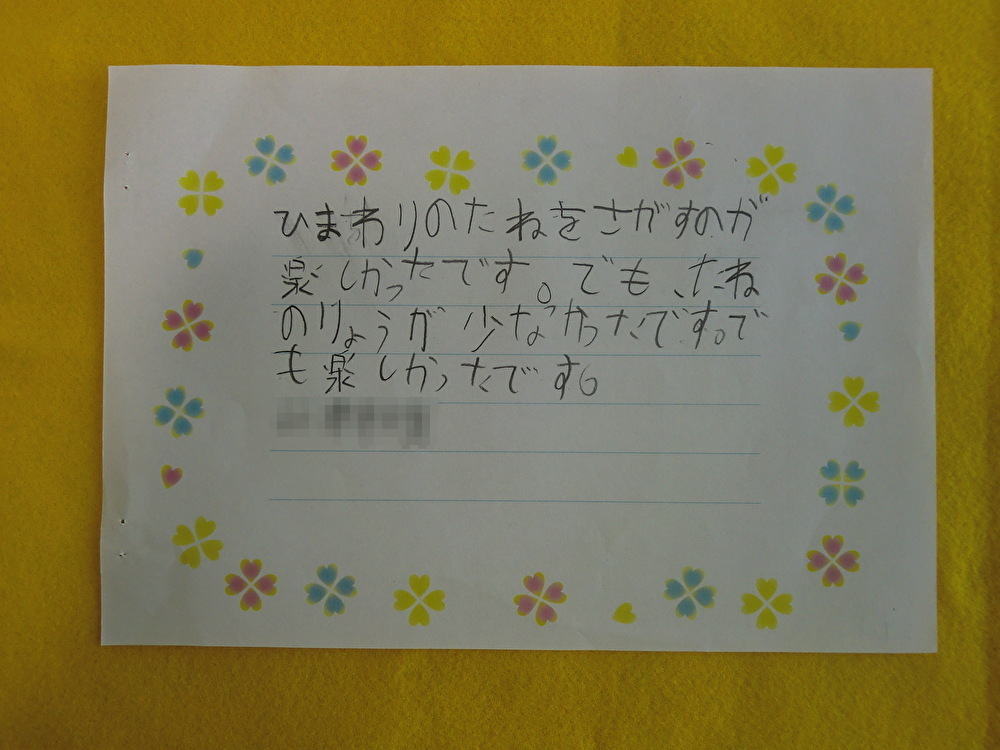 ひまわりのたねをさがすのが
楽しかったです。でも、たね
のりょうが少なかったです。で
も楽しかったです。